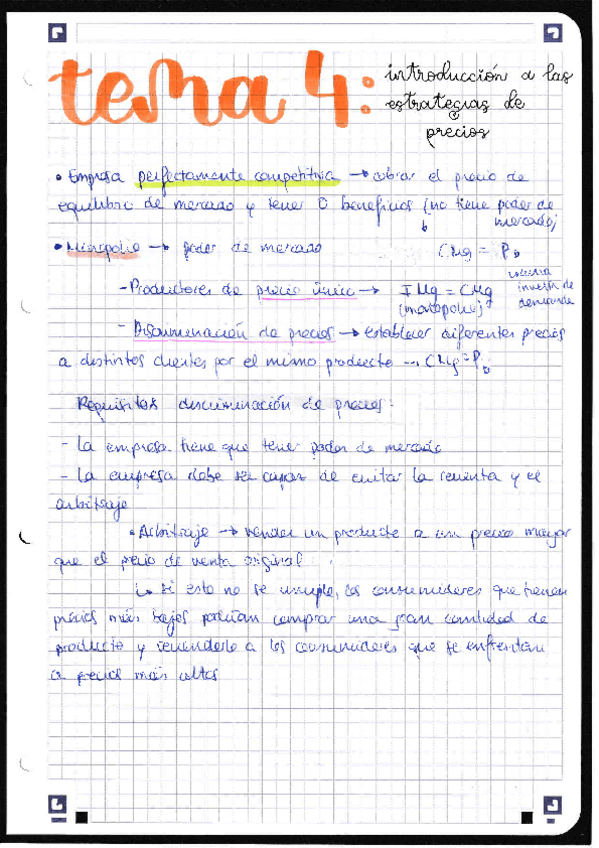 tema 4:
introducción a las
estrategias de
precios
• Empresa perfectamente competitiva → cobrar el precio de
equilibrio de mercado y tener 0 beneficios (no tiene poder de
mercado)
CMg = PD
inversa de
demanda
• Monopolio → poder de mercado
- Productores de precio único → IMg = CMg
(monopolio)
- Discriminación de precios → establecer diferentes precios
a distintos clientes por el mismo producto → CMg = PD
Requisitos discriminación de precios:
- La empresa tiene que tener poder de mercado
- La empresa debe ser capaz de evitar la reventa y el
arbitraje
• Arbitraje → vender un producto a un precio mayor
que el precio de venta original
↳ si esto no se cumple, los consumidores que tienen
precios más bajos podrían comprar una gran cantidad de
producto y revenderlo a los consumidores que se enfrentan
a precios más altos